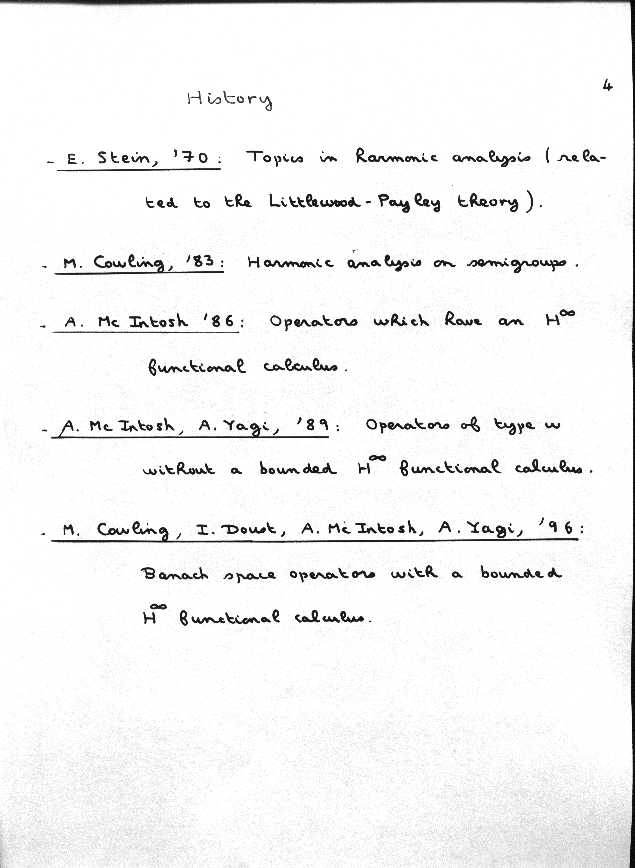 4
History
- E. Stein, '70 : Topics in harmonic analysis (rela-
ted to the Littlewood - Payley theory).
- M. Cowling, '83 : Harmonic analysis on semigroups.
- A. Mc Intosh '86 : Operators which have an H^∞
functional calculus.
- A. Mc Intosh, A. Yagi, '89 : Operators of type ω
without a bounded H^∞ functional calculus.
- M. Cowling, I. Doust, A. Mc Intosh, A. Yagi, '96 :
Banach space operators with a bounded
H^∞ functional calculus.